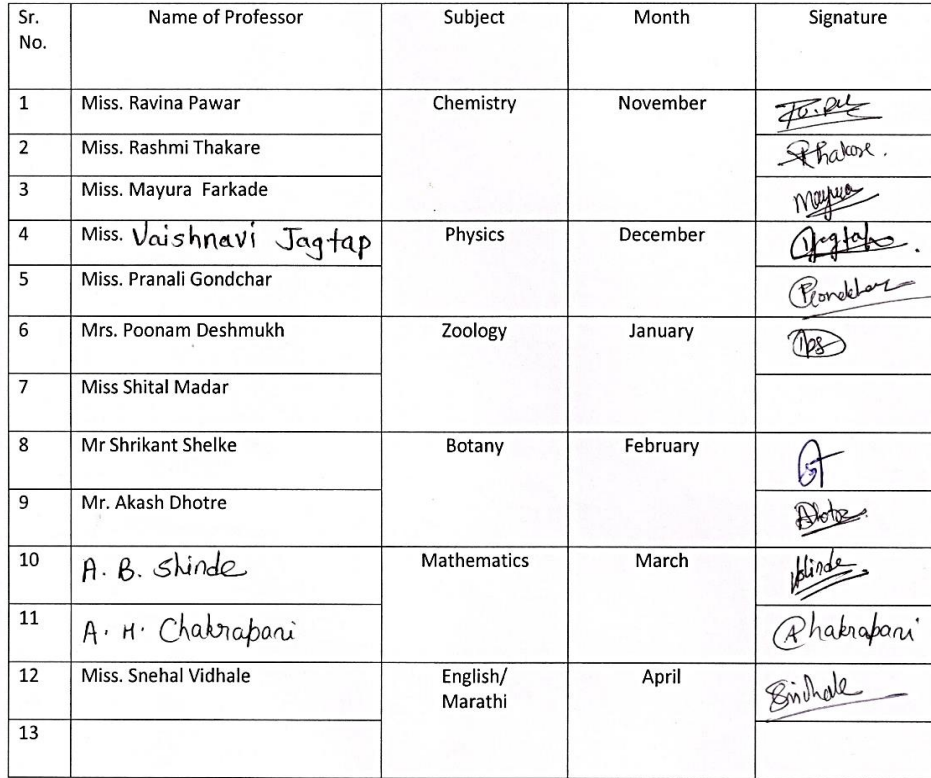 Sr. No. Name of Professor Subject Month Signature
1 Miss. Ravina Pawar Chemistry November
2 Miss. Rashmi Thakare Thakare.
3 Miss. Mayura Farkade Mayura
4 Miss. Vaishnavi Jagtap Physics December Jagtap.
5 Miss. Pranali Gondchar
6 Mrs. Poonam Deshmukh Zoology January
7 Miss Shital Madar
8 Mr Shrikant Shelke Botany February
9 Mr. Akash Dhotre Dhotre
10 A. B. Shinde Mathematics March Shinde
11 A. H. Chakrapani Chakrapani
12 Miss. Snehal Vidhale English/ Marathi April
13